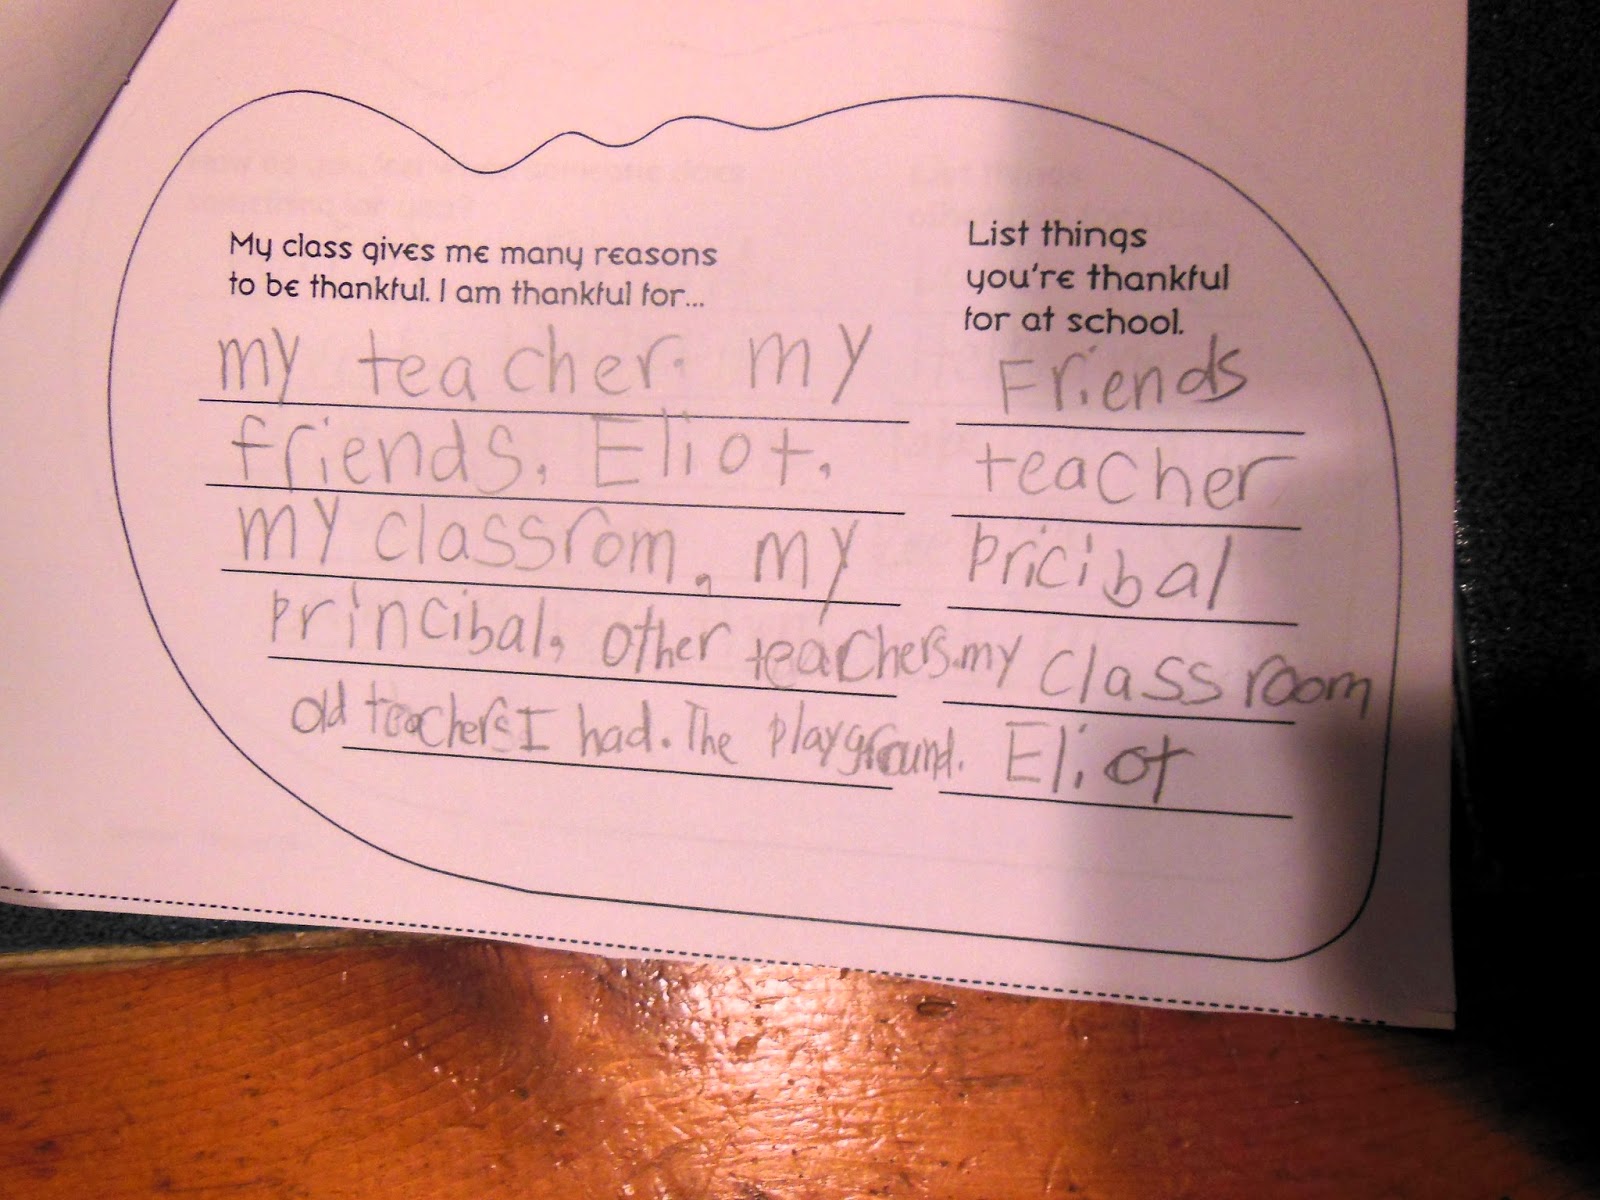 My class gives me many reasons
to be thankful. I am thankful for...
my teacher. my
friends, Eliot,
my classrom, my
princibal, other teachers.
old teachers I had. The playground.
List things
you're thankful
for at school.
Friends
teacher
pricibal
my classroom
Eliot